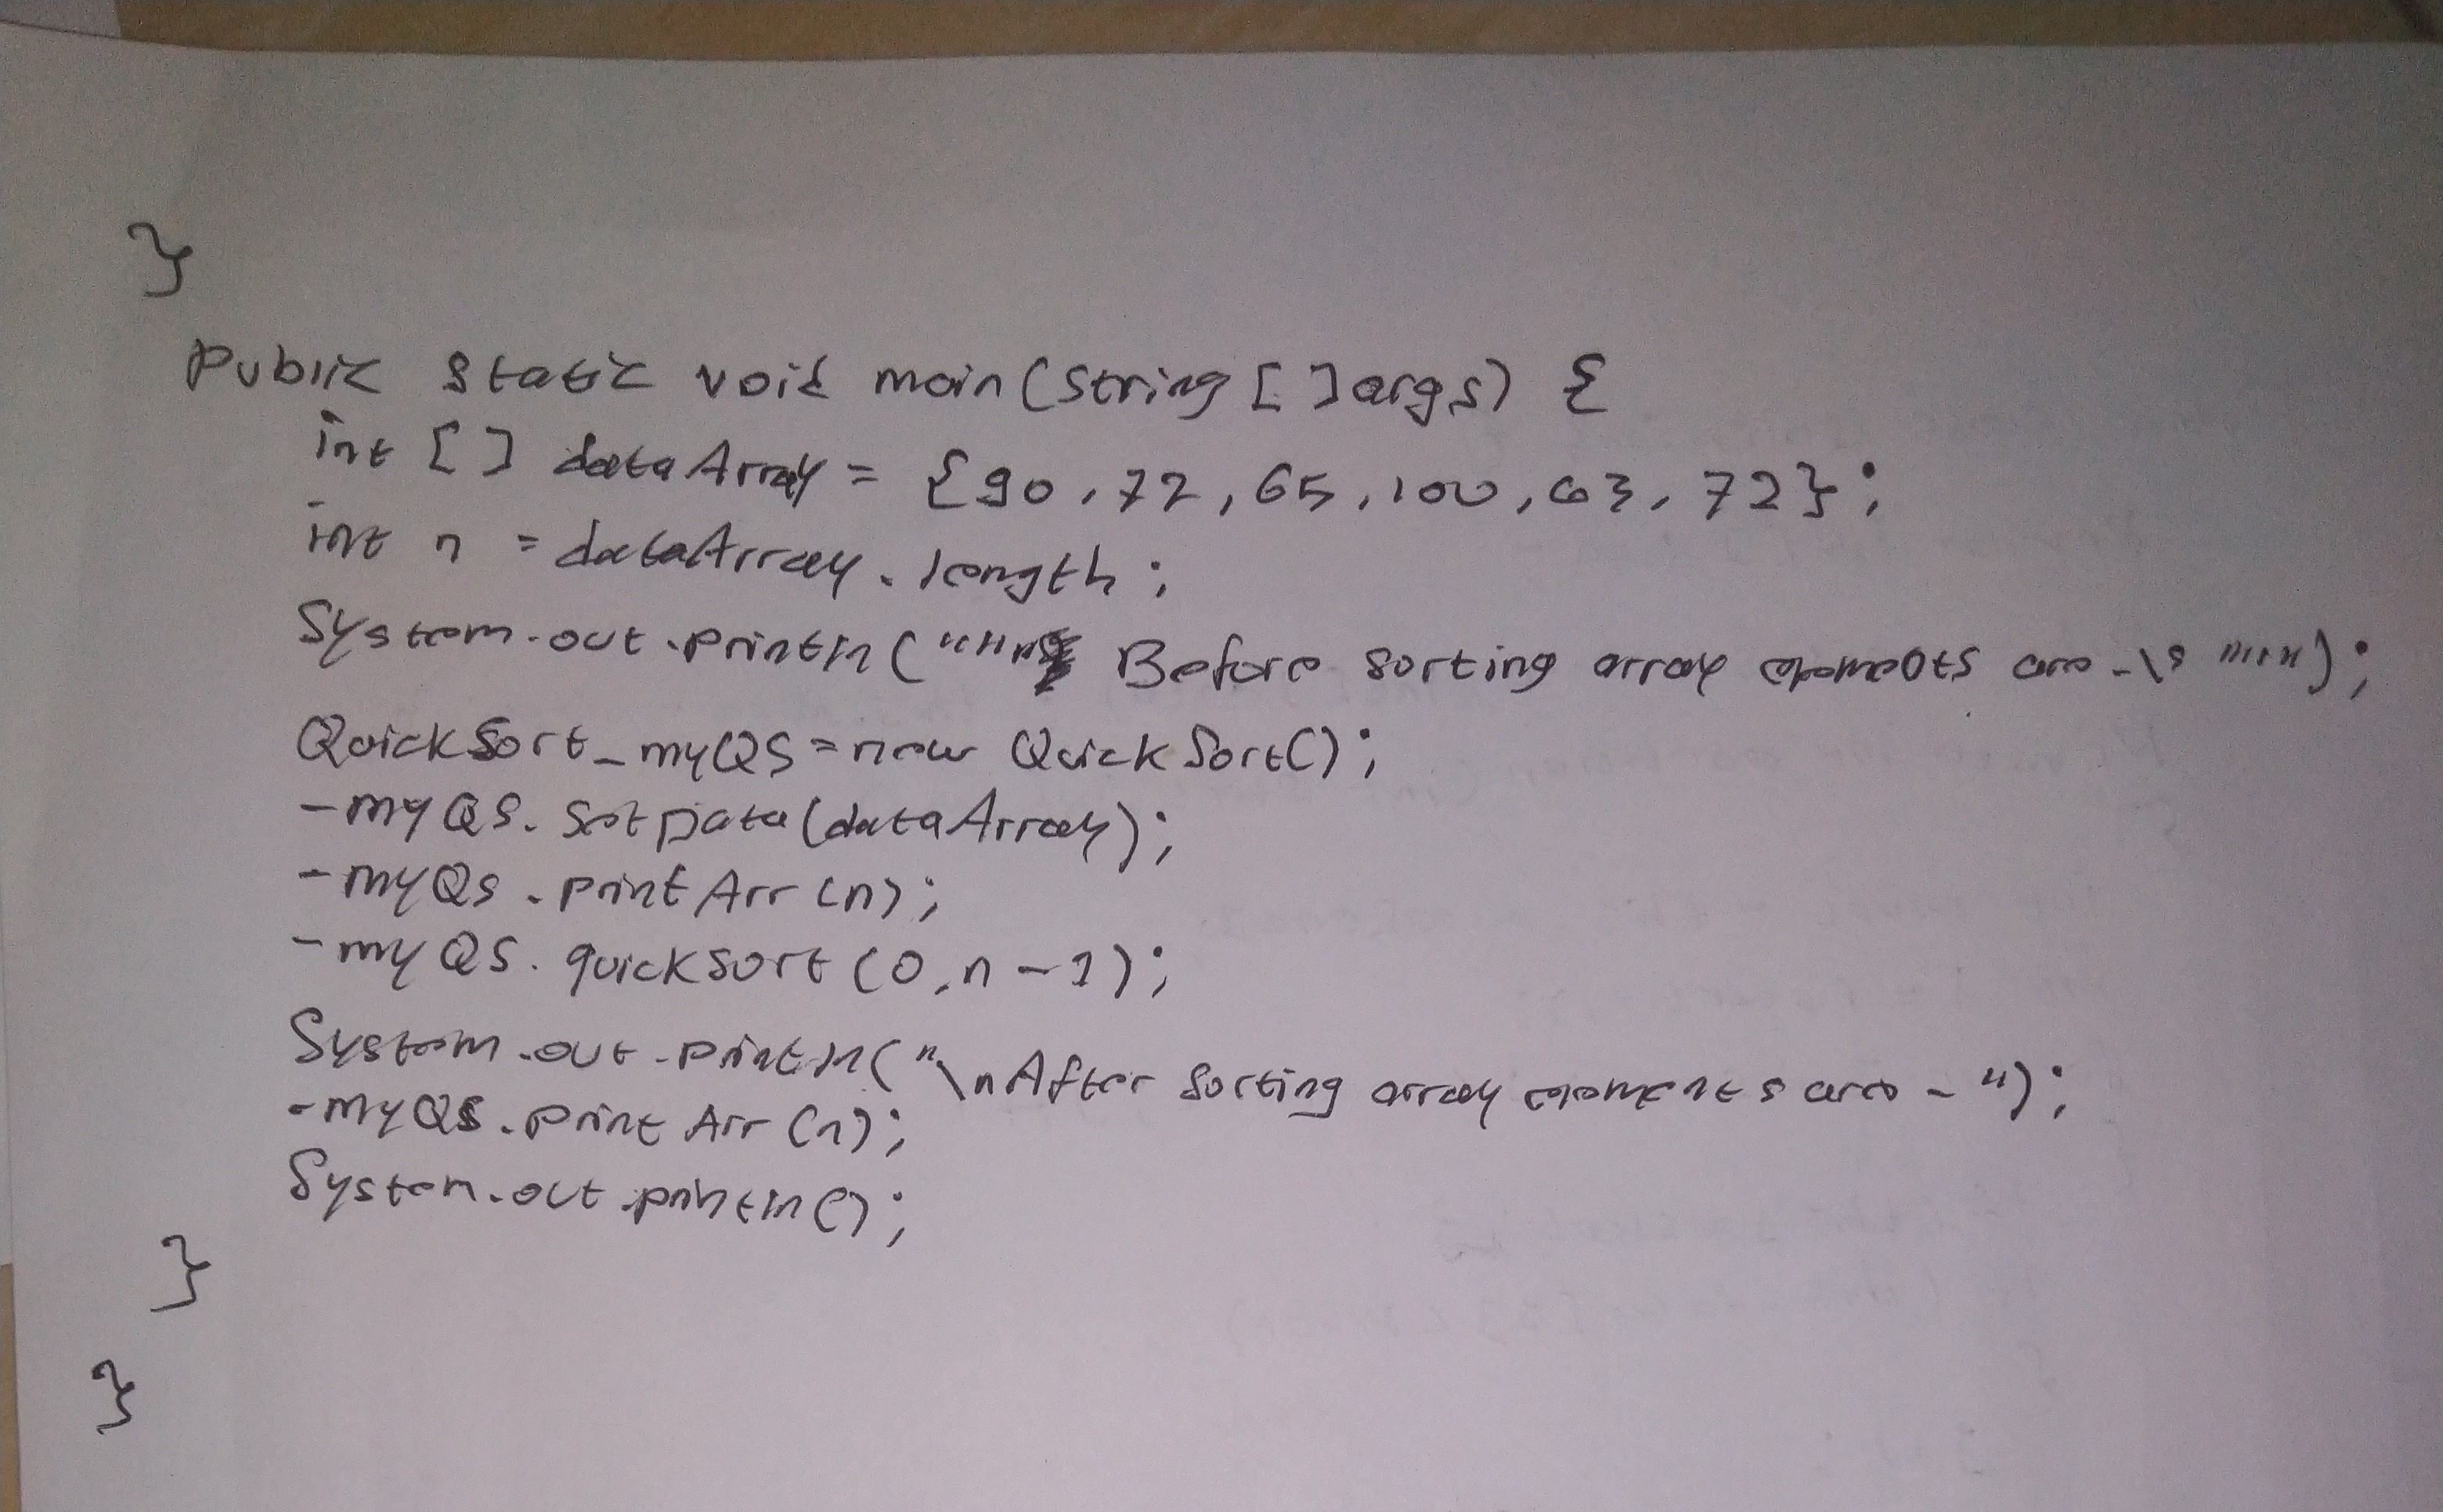 }
public static void main(String [] args) {
int [] dataArray = {90, 72, 65, 100, 63, 72};
int n = dataArray.length;
System.out.println(""" Before sorting array elements are -\s """);
QuickSort _myQS = new QuickSort();
_myQS.setData(dataArray);
_myQS.printArr(n);
_myQS.quickSort(0, n-1);
System.out.println("\nAfter sorting array elements are - ");
_myQS.printArr(n);
System.out.println();
}
}